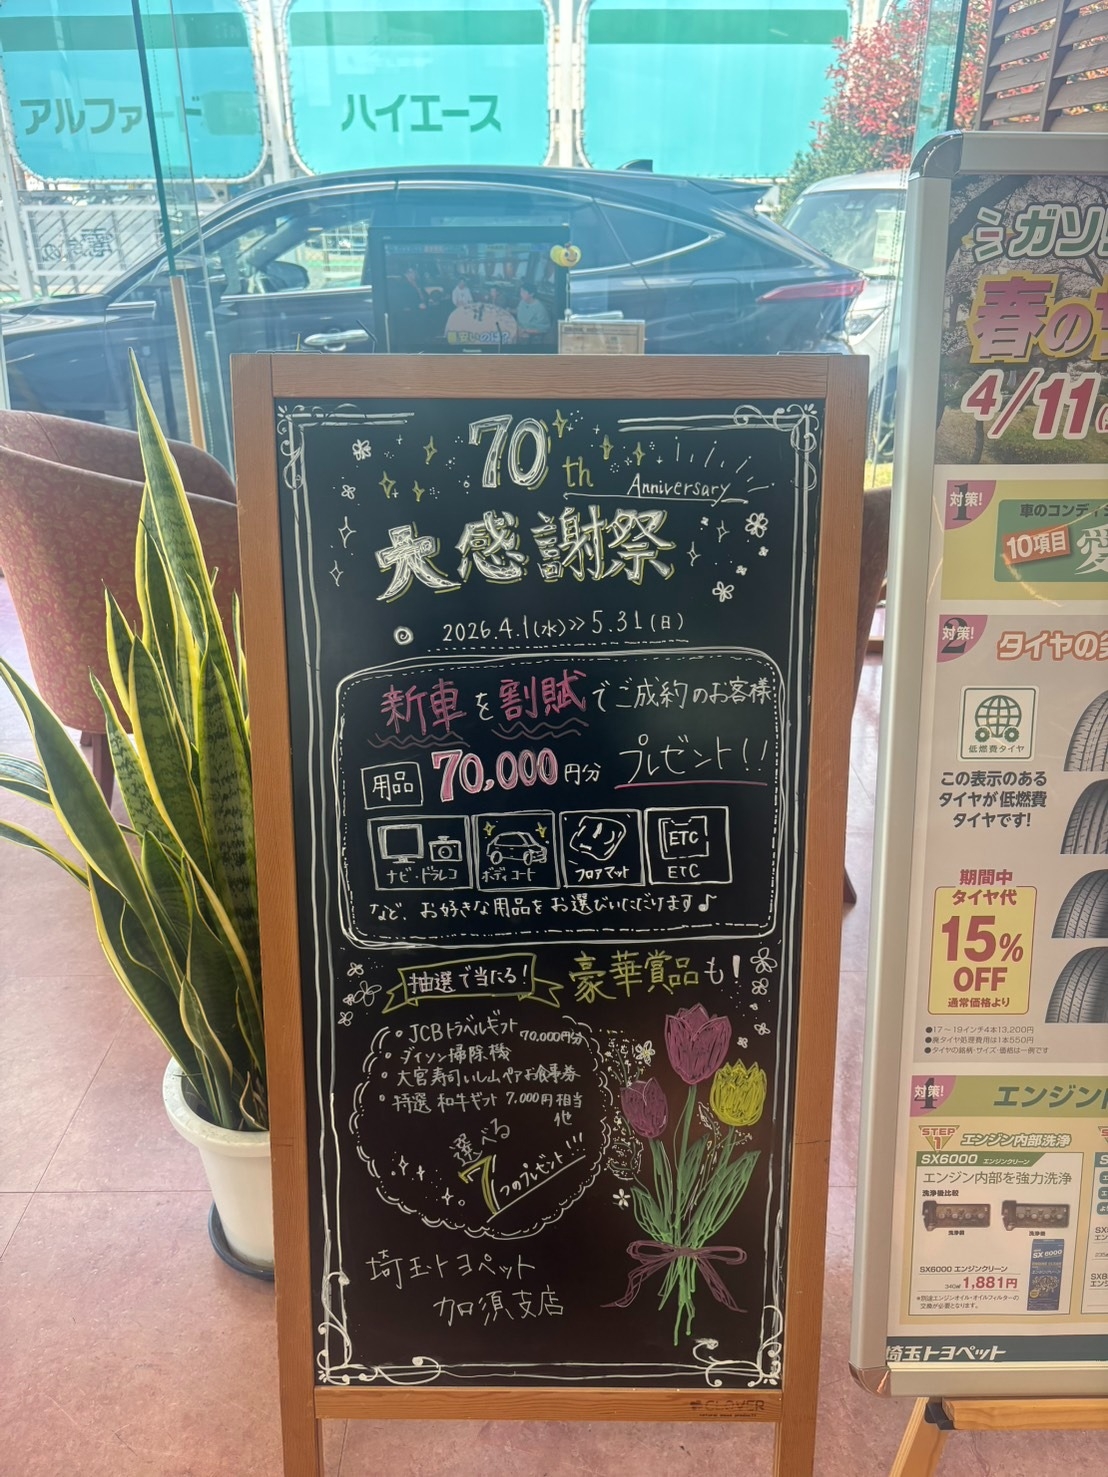 アルファード
ハイエース
70th
Anniversary
大感謝祭
2026.4.1(水)>>5.31(日)
新車を割賦でご成約のお客様
用品 70,000円分 プレゼント!!
ナビ・ドラレコ
ボディコート
フロアマット
ETC
ETC
など、お好きな用品をお選びいただけます♪
抽選で当たる! 豪華賞品も!
・JCBトラベルギフト 70,000円分
・ダイソン掃除機
・大宮寿司いしやまペアお食事券
・特選 和牛ギフト 7,000円相当
他
選べる
7つのプレゼント!!!
埼玉トヨペット
加須支店
CLOVER
ガソ
春の
4/11
対策!
1
車のコンディ
10項目
愛
対策!
2
タイヤの
低燃費タイヤ
この表示のある
タイヤが低燃費
タイヤです!
期間中
タイヤ代
15%
OFF
通常価格より
●17～19インチ4本13,200円
●廃タイヤ処理費用は1本550円
●タイヤの銘柄・サイズ・価格は一例です
対策!
4
エンジン
STEP
1
エンジン内部洗浄
SX6000 エンジンクリーン
エンジン内部を強力洗浄
洗浄後比較
洗浄前
洗浄後
SX6000 エンジンクリーン
340ml 1,881円
埼玉トヨペット